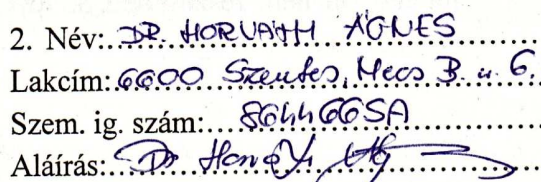 2. Név: DR. HORVÁTH ÁGNES
Lakcím: 6600 Szentes, Mecs B. u. 6.
Szem. ig. szám: 864466SA
Aláírás: Dr Horváth Ág